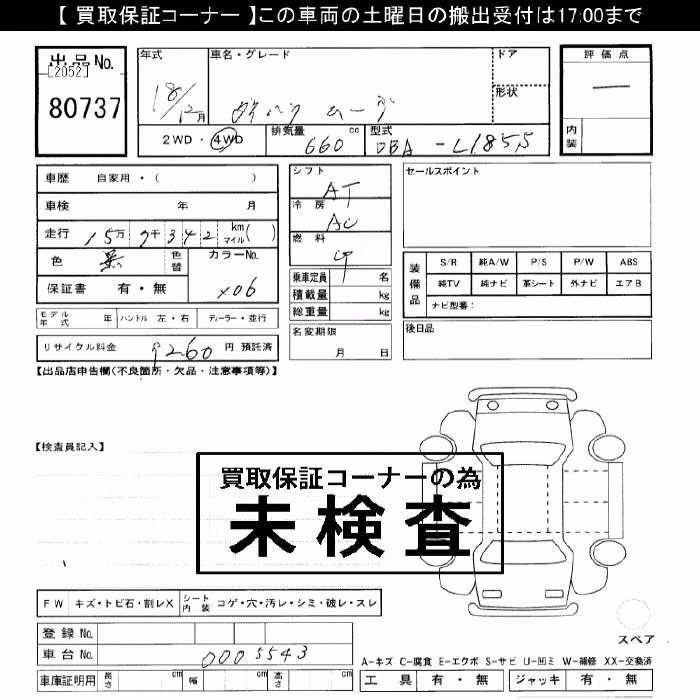 【 買取保証コーナー 】この車両の土曜日の搬出受付は17:00まで
出品No.
[2052]
80737
年式
18/12月
車名・グレード
ダイハツ ムーヴ
ドア
形状
評価点
内装
2WD・4WD
排気量 660 cc
型式 DBA-L185S
車歴 自家用・( )
車検 年 月
走行 15万7千342 km マイル( )
色 黒 色替
カラーNo. X06
保証書 有・無
モデル年式 年 ハンドル 左・右 ディーラー・並行
リサイクル料金 9260 円 預託済
シフト AT
冷房 AC
燃料
乗車定員 4 名
積載量 kg
総重量 kg
名変期限
月 日
セールスポイント
装備品
S/R 純A/W P/S P/W ABS
純TV 純ナビ 革シート 外ナビ エアB
ナビ型番:
後日品
【出品店申告欄(不良箇所・欠品・注意事項等)】
【検査員記入】
買取保証コーナーの為
未検査
FW キズ・トビ石・割レX シート内装 コゲ・穴・汚レ・シミ・破レ・スレ
登録No.
車台No. 0005543
車庫証明用 長さ cm 幅 cm 高さ cm
スペア
A-キズ C-腐食 E-エクボ S-サビ U-凹ミ W-補修 XX-交換済
工具 有・無 ジャッキ 有・無